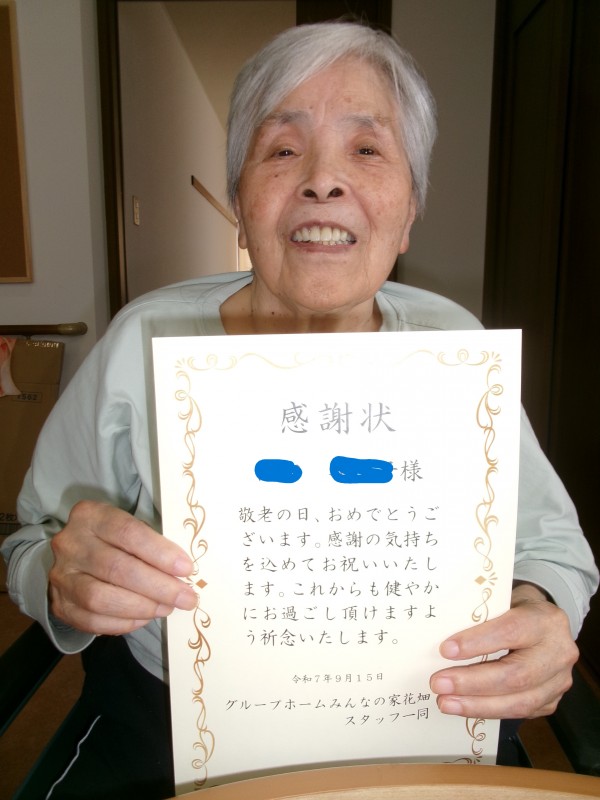 感謝状
様
敬老の日、おめでとうご
ざいます。感謝の気持ち
を込めてお祝いいたし
ます。これからも健やか
にお過ごし頂けますよ
う祈念いたします。
令和7年9月15日
グループホームみんなの家花畑
スタッフ一同